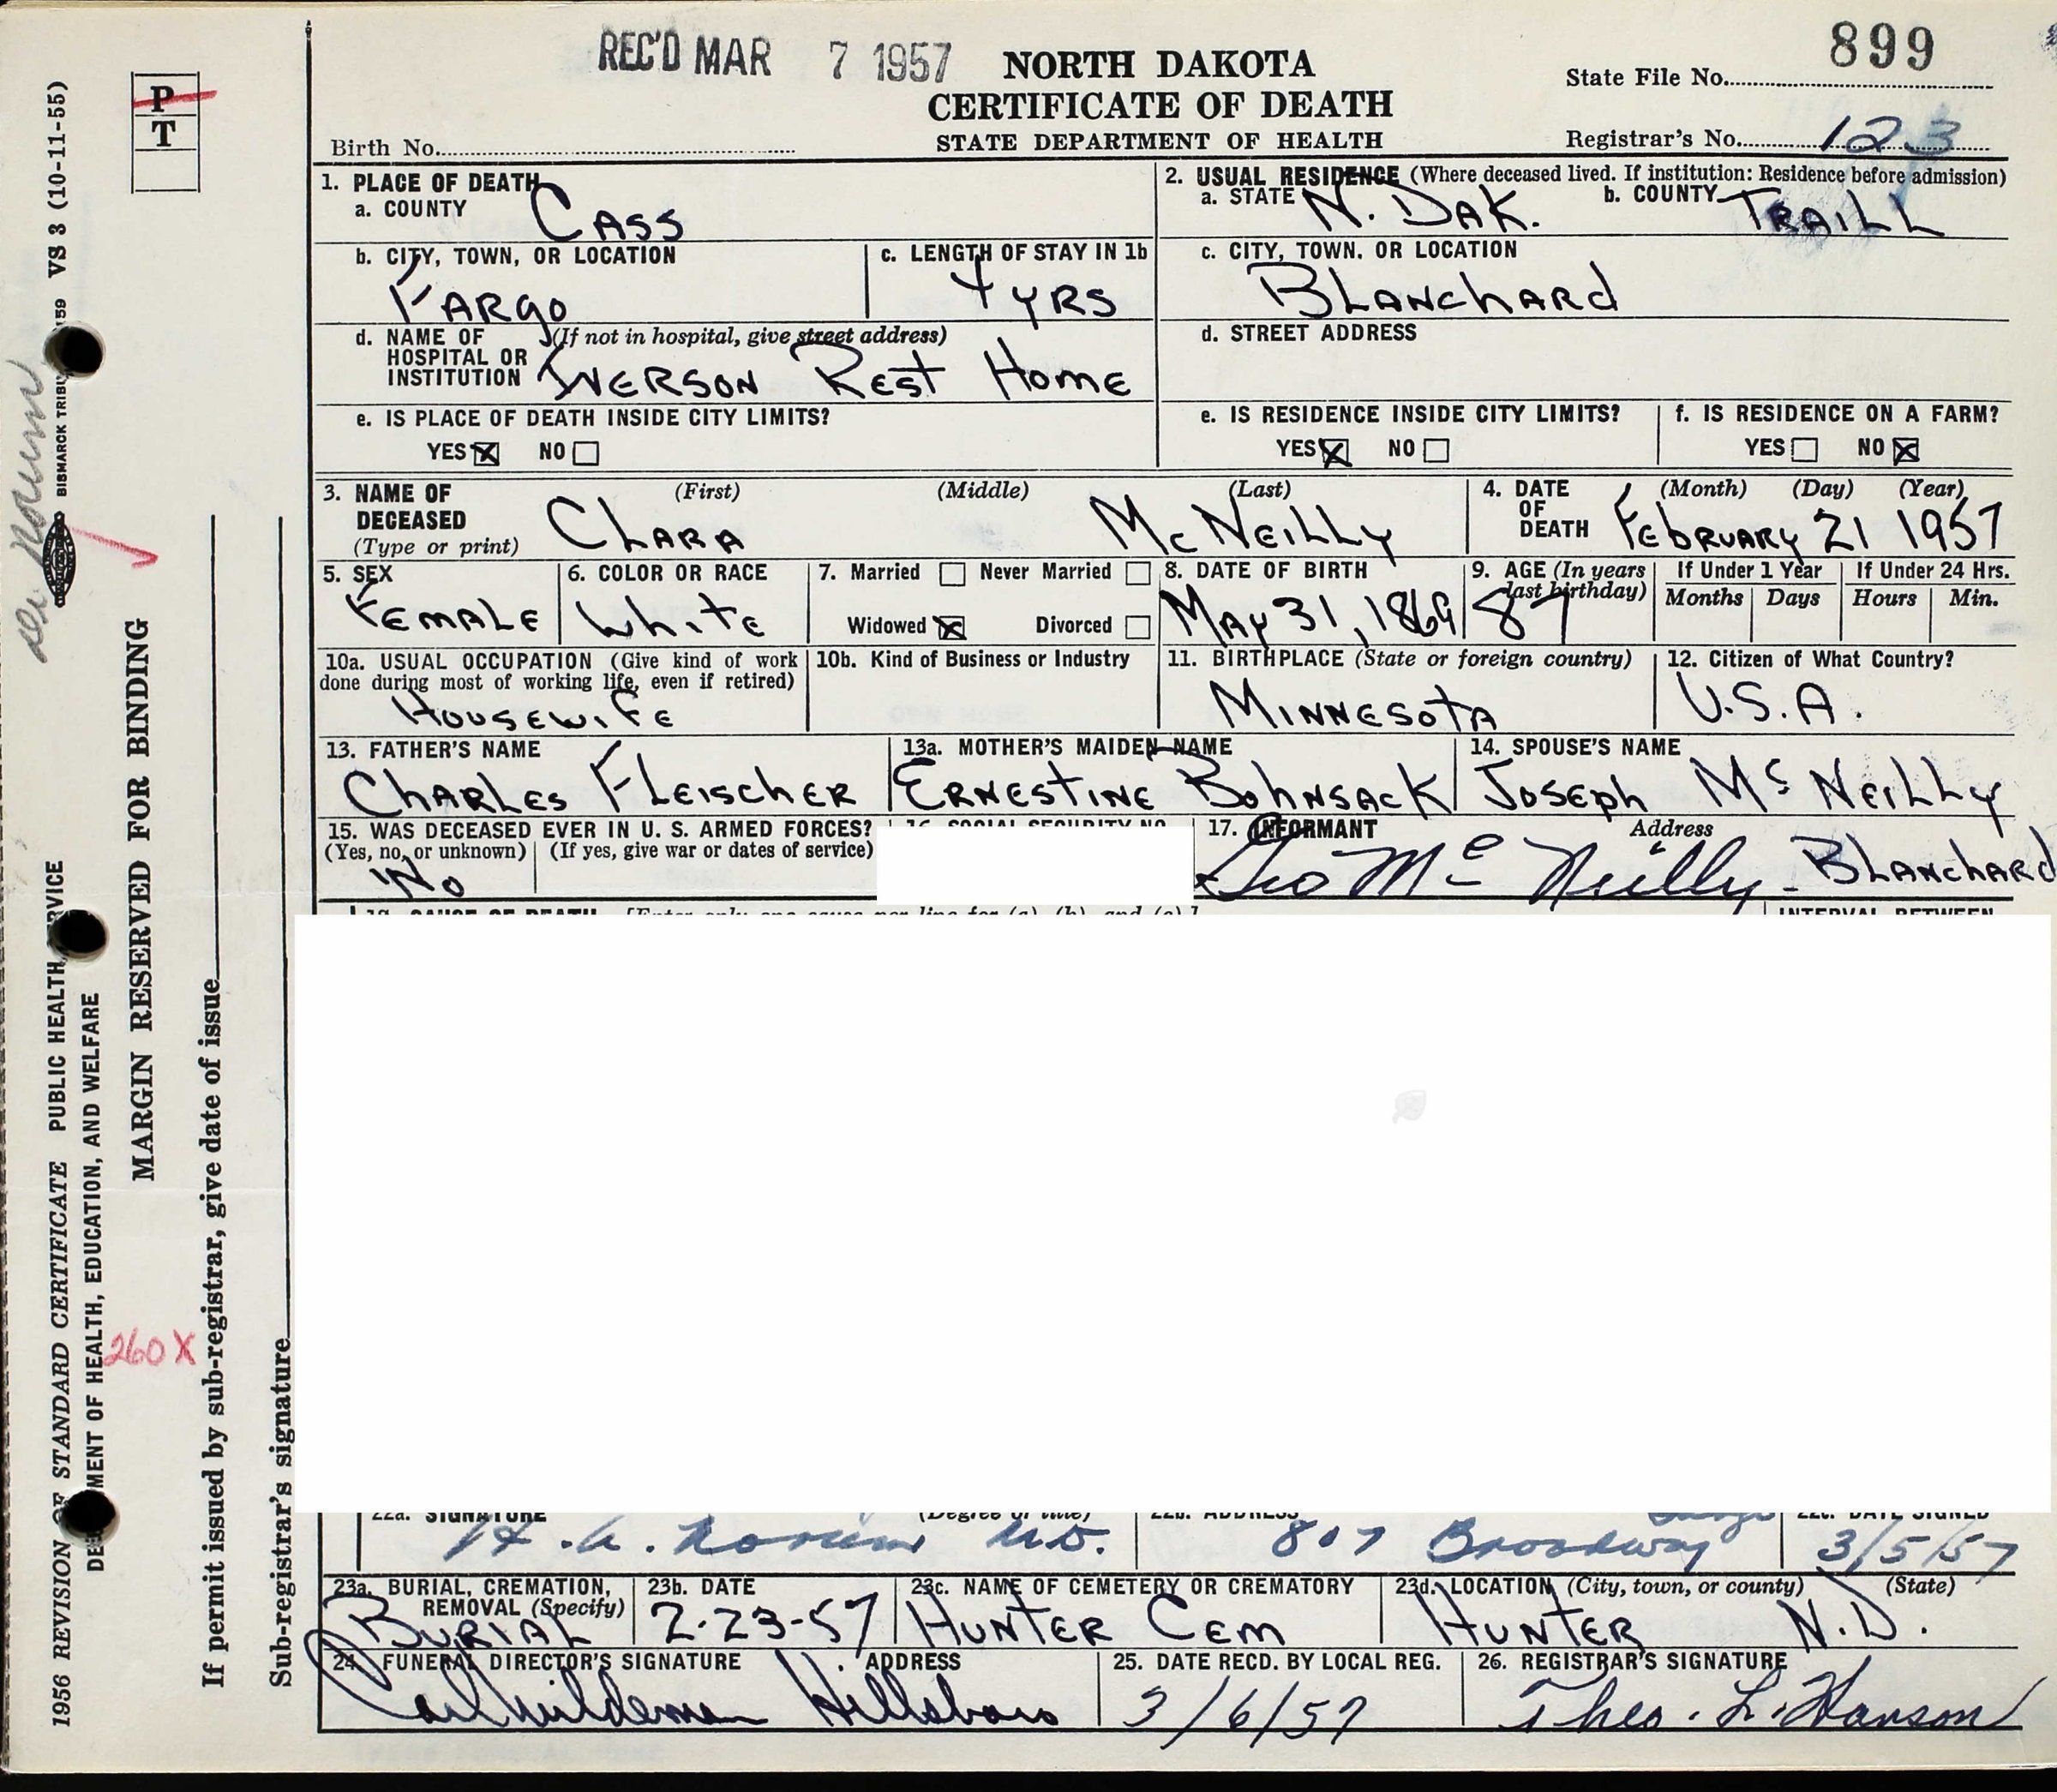 REC'D MAR 7 1957
NORTH DAKOTA
CERTIFICATE OF DEATH
STATE DEPARTMENT OF HEALTH
State File No. 899
Birth No.
Registrar's No. 123
1. PLACE OF DEATH
a. COUNTY CASS
2. USUAL RESIDENCE (Where deceased lived. If institution: Residence before admission)
a. STATE N. DAK. b. COUNTY TRAILL
b. CITY, TOWN, OR LOCATION FARGO
c. LENGTH OF STAY IN 1b 4 YRS
c. CITY, TOWN. OR LOCATION BLANCHARD
d. NAME OF HOSPITAL OR INSTITUTION (If not in hospital, give street address) IVERSON REST HOME
d. STREET ADDRESS
e. IS PLACE OF DEATH INSIDE CITY LIMITS?
YES X NO
e. IS RESIDENCE INSIDE CITY LIMITS?
YES X NO
f. IS RESIDENCE ON A FARM?
YES NO X
3. NAME OF DECEASED (Type or print) (First) (Middle) (Last)
CLARA McNEILLY
4. DATE OF DEATH (Month) (Day) (Year)
FEBRUARY 21 1957
5. SEX FEMALE
6. COLOR OR RACE WHITE
7. Married Never Married
Widowed X Divorced
8. DATE OF BIRTH MAY 31, 1869
9. AGE (In years last birthday) 87
If Under 1 Year Months Days
If Under 24 Hrs. Hours Min.
10a. USUAL OCCUPATION (Give kind of work done during most of working life, even if retired)
HOUSEWIFE
10b. Kind of Business or Industry
11. BIRTHPLACE (State or foreign country)
MINNESOTA
12. Citizen of What Country?
U.S.A.
13. FATHER'S NAME
CHARLES FLEISCHER
13a. MOTHER'S MAIDEN NAME
ERNESTINE BOHNSACK
14. SPOUSE'S NAME
JOSEPH Mc NEILLY
15. WAS DECEASED EVER IN U. S. ARMED FORCES?
(Yes, no, or unknown) (If yes, give war or dates of service)
NO
16. SOCIAL SECURITY NO.
17. INFORMANT Address
Geo Mc Neilly - BLANCHARD
18. CAUSE OF DEATH [Enter only one cause per line for (a), (b), and (c).]
INTERVAL BETWEEN
22a. SIGNATURE (Degree or title)
H. A. Norum M.D.
22b. ADDRESS
807 Broadway Fargo
22c. DATE SIGNED
3/5/57
23a. BURIAL, CREMATION, REMOVAL (Specify)
BURIAL
23b. DATE
2-23-57
23c. NAME OF CEMETERY OR CREMATORY
HUNTER CEM
23d. LOCATION (City, town, or county) (State)
HUNTER N.D.
24. FUNERAL DIRECTOR'S SIGNATURE ADDRESS
Hillsboro
25. DATE RECD. BY LOCAL REG.
3/6/57
26. REGISTRAR'S SIGNATURE
Theo. L. Hanson
P
T
VS 3 (10-11-55)
BISMARCK TRIBU 159
Dr Norum
1956 REVISION OF STANDARD CERTIFICATE PUBLIC HEALTH SERVICE
DEPARTMENT OF HEALTH, EDUCATION, AND WELFARE
MARGIN RESERVED FOR BINDING
260 X
If permit issued by sub-registrar, give date of issue
Sub-registrar's signature